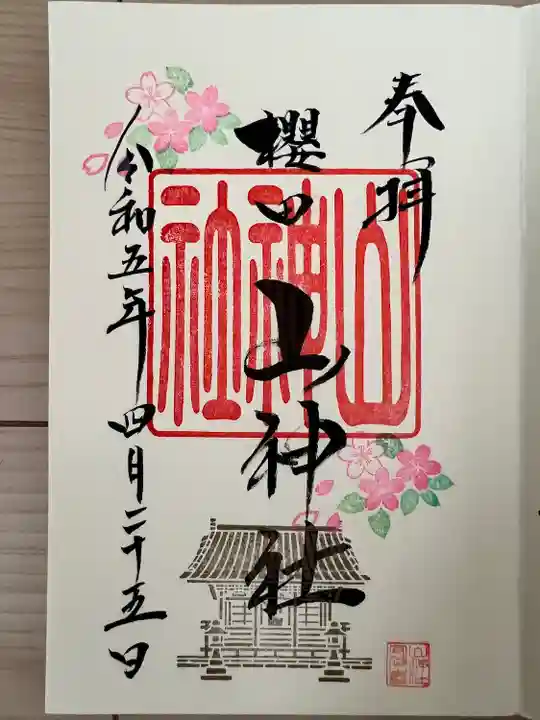 奉拝
櫻田
山神社
山神社
令和五年四月二十五日